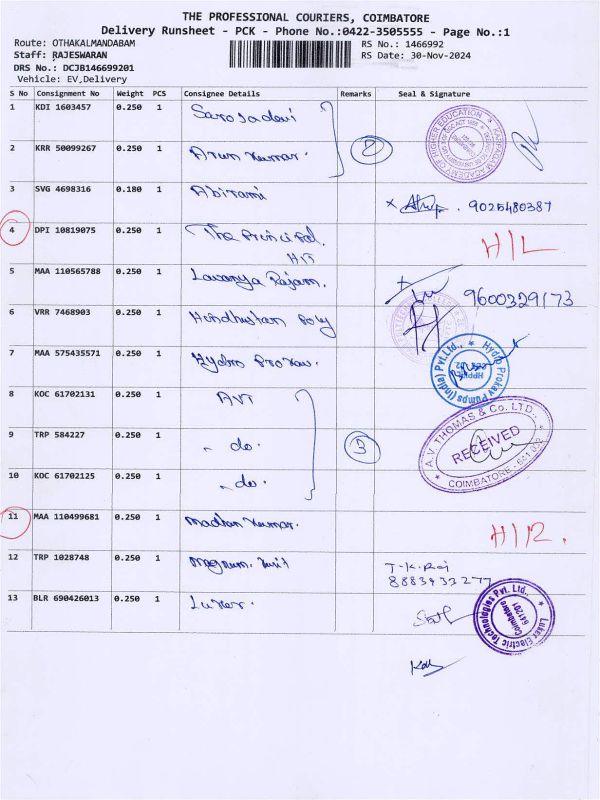 THE PROFESSIONAL COURIERS, COIMBATORE
Delivery Runsheet - PCK - Phone No.:0422-3505555 - Page No.:1
Route: OTHAKALMANDABAM RS No.: 1466992
Staff: RAJESWARAN RS Date: 30-Nov-2024
DRS No.: DCJB146699201
Vehicle: EV,Delivery
S No Consignment No Weight PCS Consignee Details Remarks Seal & Signature
1 KDI 1603457 0.250 1 Sarojadevi
2 KRR 50099267 0.250 1 Arun Kumar. 2
3 SVG 4698316 0.180 1 Abirami 9025480387
4 DPI 10819075 0.250 1 The Principal. H/L
HIT
5 MAA 110565788 0.250 1 Lavanya Rajam. 9600329173
6 VRR 7468903 0.250 1 Hindhustan Poly
7 MAA 575435571 0.250 1 Hydro Prokav.
Hydro Prokav Pumps (India) Pvt.Ltd.,
8 KOC 61702131 0.250 1 AVT
A.V. THOMAS & Co. LTD.,
9 TRP 584227 0.250 1 - do. 3 RECEIVED
10 KOC 61702125 0.250 1 - do. COIMBATORE
11 MAA 110499681 0.250 1 Madhan Kumar. H/R.
12 TRP 1028748 0.250 1 Magnum. T.K.Raj
8883933277
13 BLR 690426013 0.250 1 Luker.
Luker Electric Technologies Pvt. Ltd.,
Coimbatore
641201